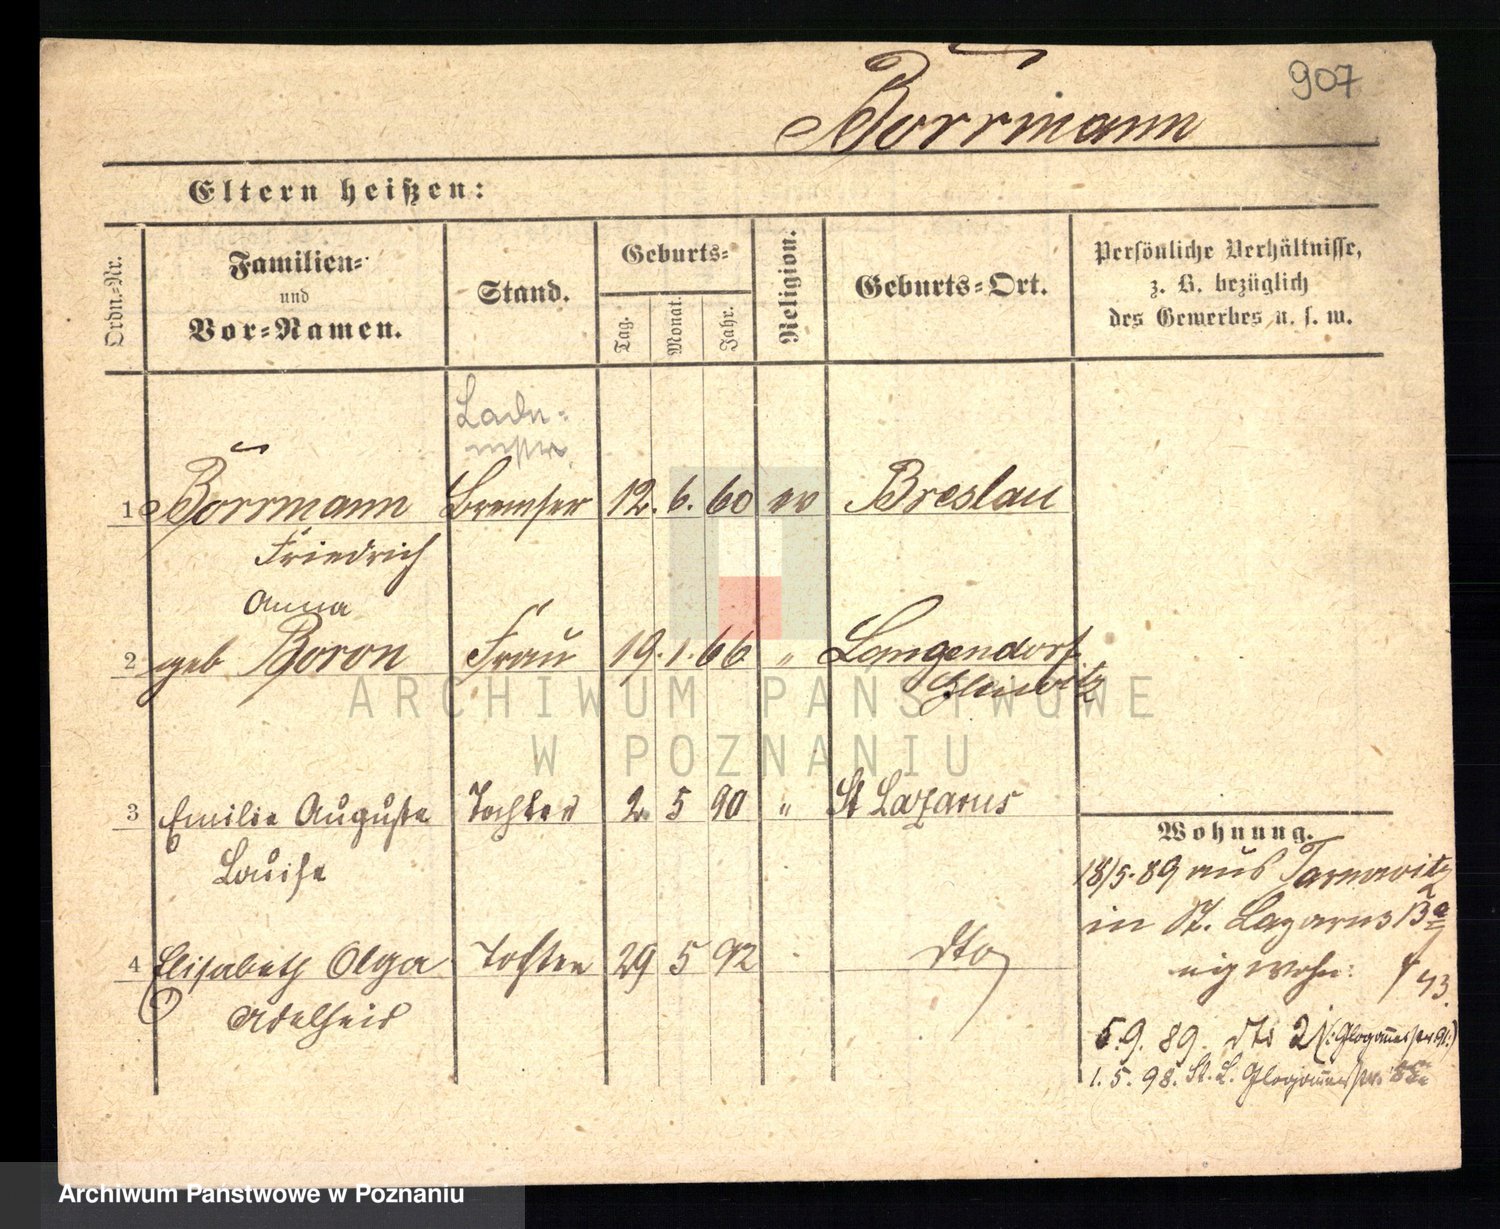 907
Borrmann
Eltern heißen:
Ordn.-Nr.
Familien-
und
Vor-Namen.
Stand.
Geburts-
Tag.
Monat.
Jahr.
Religion.
Geburts-Ort.
Persönliche Verhältnisse,
z. B. bezüglich
des Gewerbes u. s. w.
1 Borrmann Bremser 12. 6. 60 ev Breslau
Friedrich
Anna
2 geb Boron Frau 19. 1. 66 " Langendorf
Gleiwitz
ARCHIWUM PAŃSTWOWE
W POZNANIU
3 Emilie Auguste Tochter 2. 5 90 " St Lazarus
Louise
Wohnung.
18/5. 89 aus Tarnowitz
in St. Lazarus 13a
4 Elisabeth Olga Tochter 29 5 92 dto
Adelheid
5. 9. 89. dto 2
1. 5. 98. St. L. Glogauerstr.
Archiwum Państwowe w Poznaniu